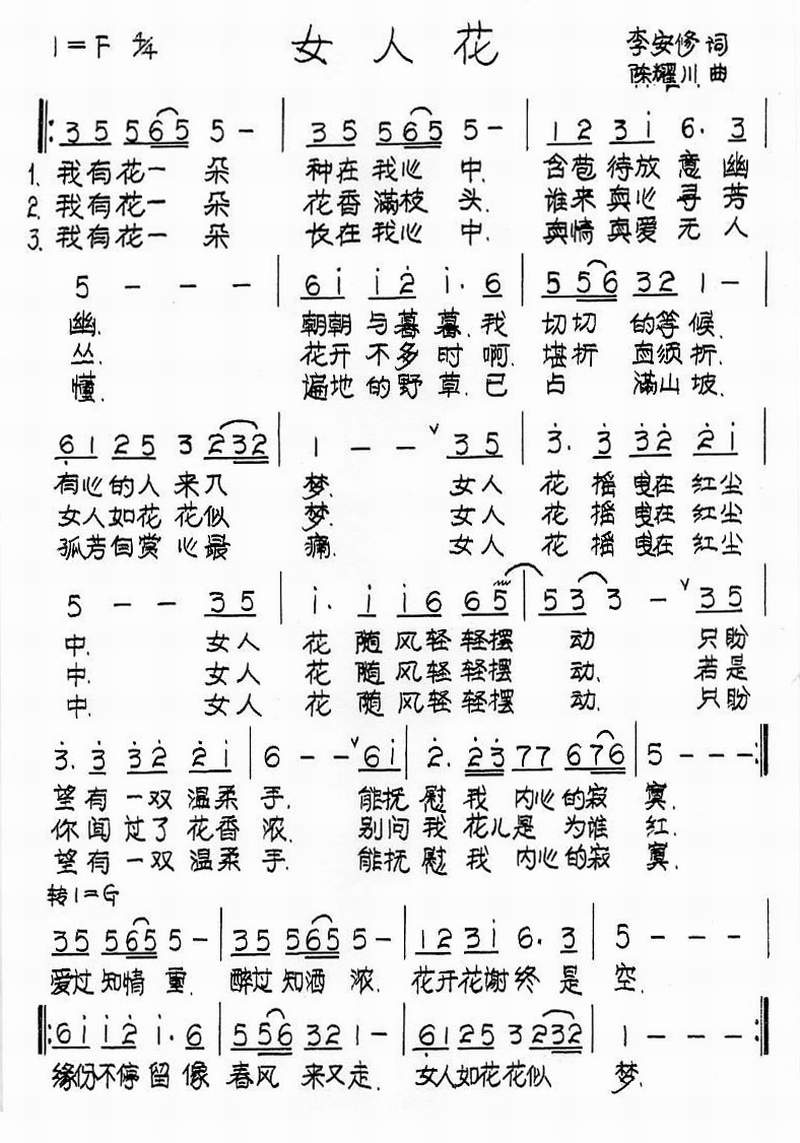 1=F 4/4 女人花 李安修词
陈耀川曲
35 565 5- | 35 565 5- | 12 3i 6. 3
1. 我有花一朵 种在我心中. 含苞待放意幽
2. 我有花一朵 花香满枝头. 谁来真心寻芳
3. 我有花一朵 长在我心中. 真情真爱无人
5 - - - | 6i i2 i. 6 | 556 32 1 -
幽. 朝朝与暮暮.我 切切的等候.
丛. 花开不多时啊. 堪折直须折.
懂. 遍地的野草.已 占满山坡.
61 25 3 232 | 1 - - v 35 | 3. 3 32 2i
有心的人来入 梦. 女人花摇曳在红尘
女人如花花似 梦. 女人花摇曳在红尘
孤芳自赏心最 痛. 女人花摇曳在红尘
5 - - 35 | i. i i6 65 | 53 3 - v 35
中. 女人花随风轻轻摆动 只盼
中. 女人花随风轻轻摆动. 若是
中. 女人花随风轻轻摆动. 只盼
3. 3 32 2i | 6 - - v 6i | 2. 23 77 676 | 5 - - - :|
望有一双温柔手. 能抚慰我内心的寂寞.
你闻过了花香浓. 别问我花儿是为谁红.
望有一双温柔手. 能抚慰我内心的寂寞.
转1=G
35 565 5- | 35 565 5- | 12 3i 6. 3 | 5 - - -
爱过知情重. 醉过知酒浓. 花开花谢终是空.
|: 6i i2 i. 6 | 556 32 1- | 61 25 3 232 | 1 - - - :|
缘份不停留像春风来又走. 女人如花花似梦.